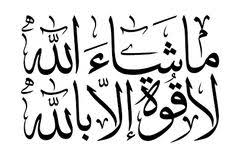 ما شَاءَ اللّٰه
لا قُوَّةَ إِلَّا بِاللّٰه